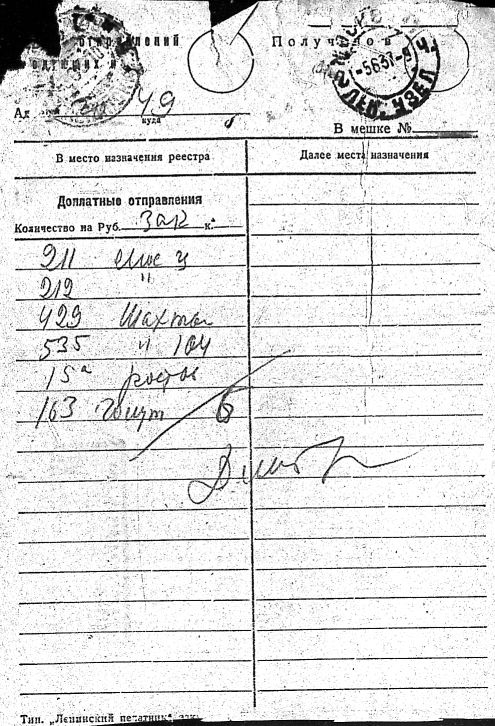 отправлений
Получено в
МОСКВА
-5.6.31-9
Ч.
ЛЕН. УЗЕЛ
Ад
49
куда
В мешке №
В место назначения реестра
Далее места назначения
Доплатные отправления
Количество на Руб. Зак к.
211
212 "
429 Шахты
535 " 104
15а ростов
163 6
Тип. „Ленинский печатник" зак.